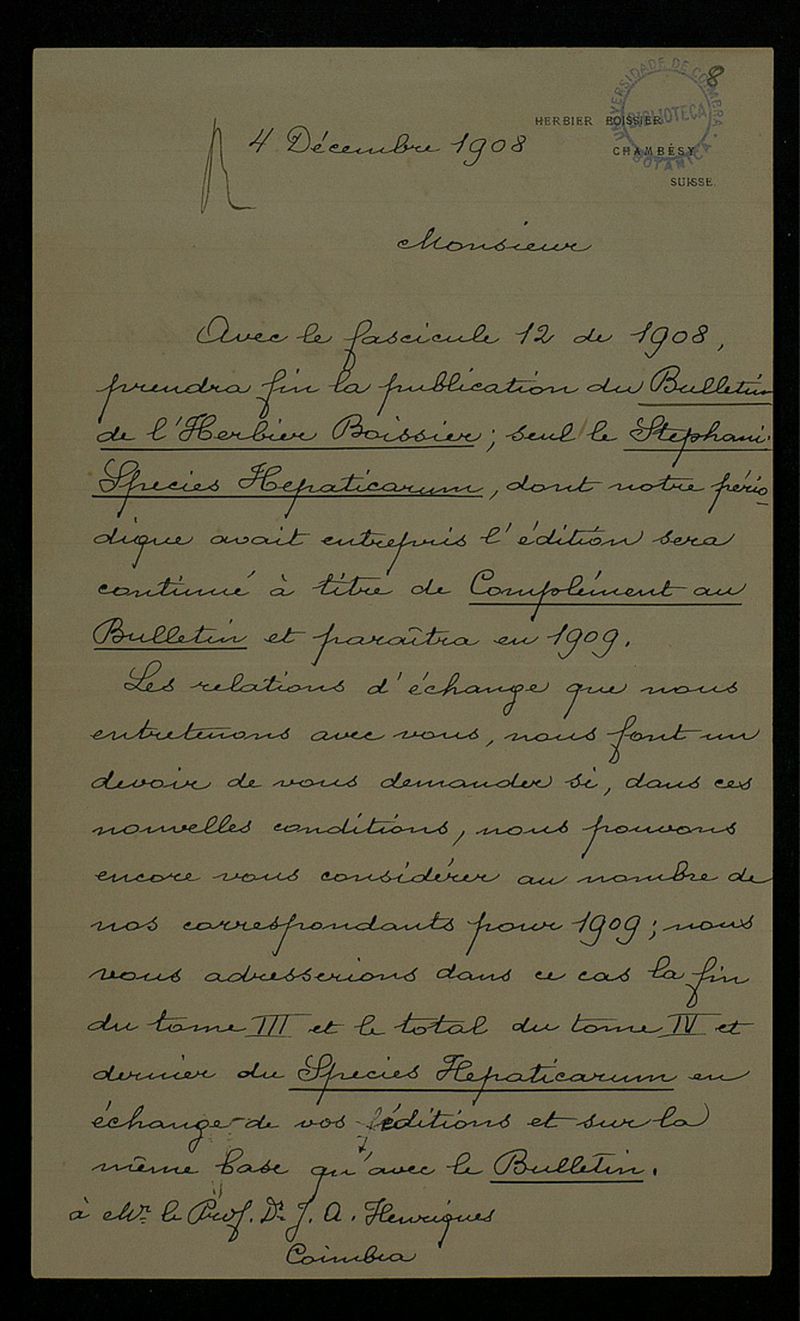 8
UNIVERSIDADE DE COIMBRA
BIBLIOTECA
BOTANICA
HERBIER BOISSIER
CHAMBÉSY
SUISSE.
4 Décembre 1908
Monsieur
Avec le fascicule 12 de 1908,
prendra fin la publication du Bulletin
de l'Herbier Boissier; seul le Stephani:
Species Hepaticarum, dont notre pério-
dique avait entrepris l'édition sera
continué à titre de Complément au
Bulletin et paraîtra en 1909.
Les relations d'échange que nous
entretenons avec vous, nous font un
devoir de vous demander si, dans ces
nouvelles conditions, nous pouvons
encore vous considérer au nombre de
nos correspondants pour 1909; nous
vous adresserions dans ce cas la fin
du tome III et le total du tome IV et
dernier du Species Hepaticarum en
échange de vos éditions et sur la
même base qu'avec le Bulletin.
à Mr. le Prof. Dr. J. A. Henriques
Coimbra